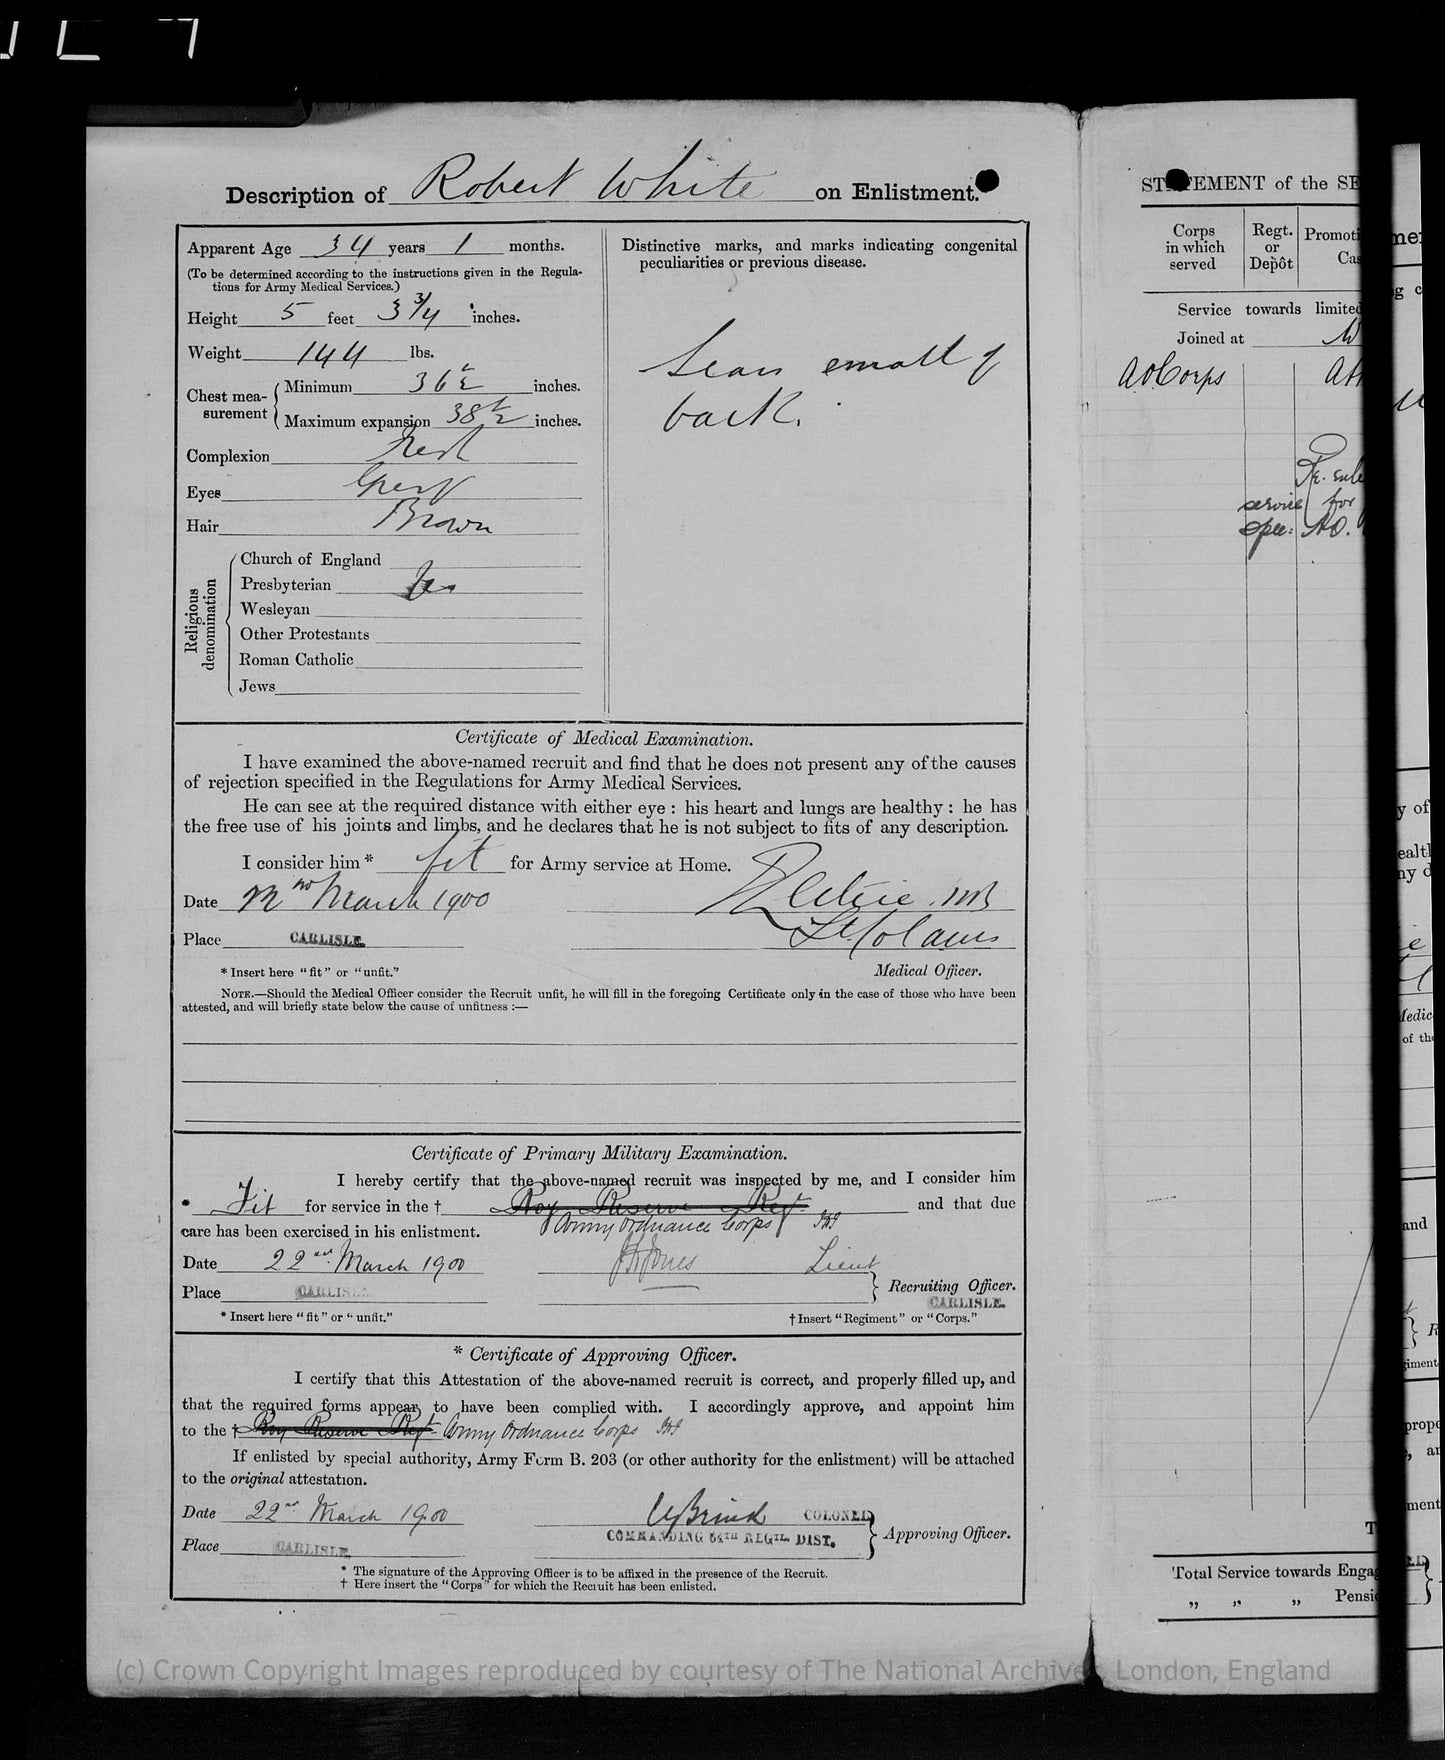 Description of Robert White on Enlistment.
Apparent Age 34 years 1 months.
(To be determined according to the instructions given in the Regula-
tions for Army Medical Services.)
Height 5 feet 3 3/4 inches.
Weight 144 lbs.
Chest mea-
surement
Minimum 36½ inches.
Maximum expansion 38½ inches.
Complexion Fresh
Eyes Grey
Hair Brown
Religious
denomination
Church of England
Presbyterian Yes
Wesleyan
Other Protestants
Roman Catholic
Jews
Distinctive marks, and marks indicating congenital
peculiarities or previous disease.
Scars small of
back.
Certificate of Medical Examination.
I have examined the above-named recruit and find that he does not present any of the causes
of rejection specified in the Regulations for Army Medical Services.
He can see at the required distance with either eye : his heart and lungs are healthy : he has
the free use of his joints and limbs, and he declares that he is not subject to fits of any description.
I consider him * fit for Army service at Home.
Date March 1900
MB
Place CARLISLE.
Lt.
* Insert here "fit" or "unfit."
Medical Officer.
NOTE.—Should the Medical Officer consider the Recruit unfit, he will fill in the foregoing Certificate only in the case of those who have been
attested, and will briefly state below the cause of unfitness :—
Certificate of Primary Military Examination.
I hereby certify that the above-named recruit was inspected by me, and I consider him
* Fit for service in the † Roy Reserve Regt and that due
Army Ordnance Corps
care has been exercised in his enlistment.
Date 22nd March 1900
Jones Lieut
Place CARLISLE
Recruiting Officer.
CARLISLE.
* Insert here "fit" or "unfit."
† Insert "Regiment" or "Corps."
* Certificate of Approving Officer.
I certify that this Attestation of the above-named recruit is correct, and properly filled up, and
that the required forms appear to have been complied with. I accordingly approve, and appoint him
to the † Roy Reserve Regt Army Ordnance Corps
If enlisted by special authority, Army Form B. 203 (or other authority for the enlistment) will be attached
to the original attestation.
Date 22nd March 1900
COLONEL
COMMANDING 64TH REGTL. DIST.
Approving Officer.
Place CARLISLE
* The signature of the Approving Officer is to be affixed in the presence of the Recruit.
† Here insert the "Corps" for which the Recruit has been enlisted.
STATEMENT of the SE
Corps
in which
served
Regt.
or
Depôt
Promoti
Cas
Service towards limited
Joined at
AO Corps
service for
Total Service towards Engag
„ „ „ Pensi
(c) Crown Copyright Images reproduced by courtesy of The National Archives, London, England